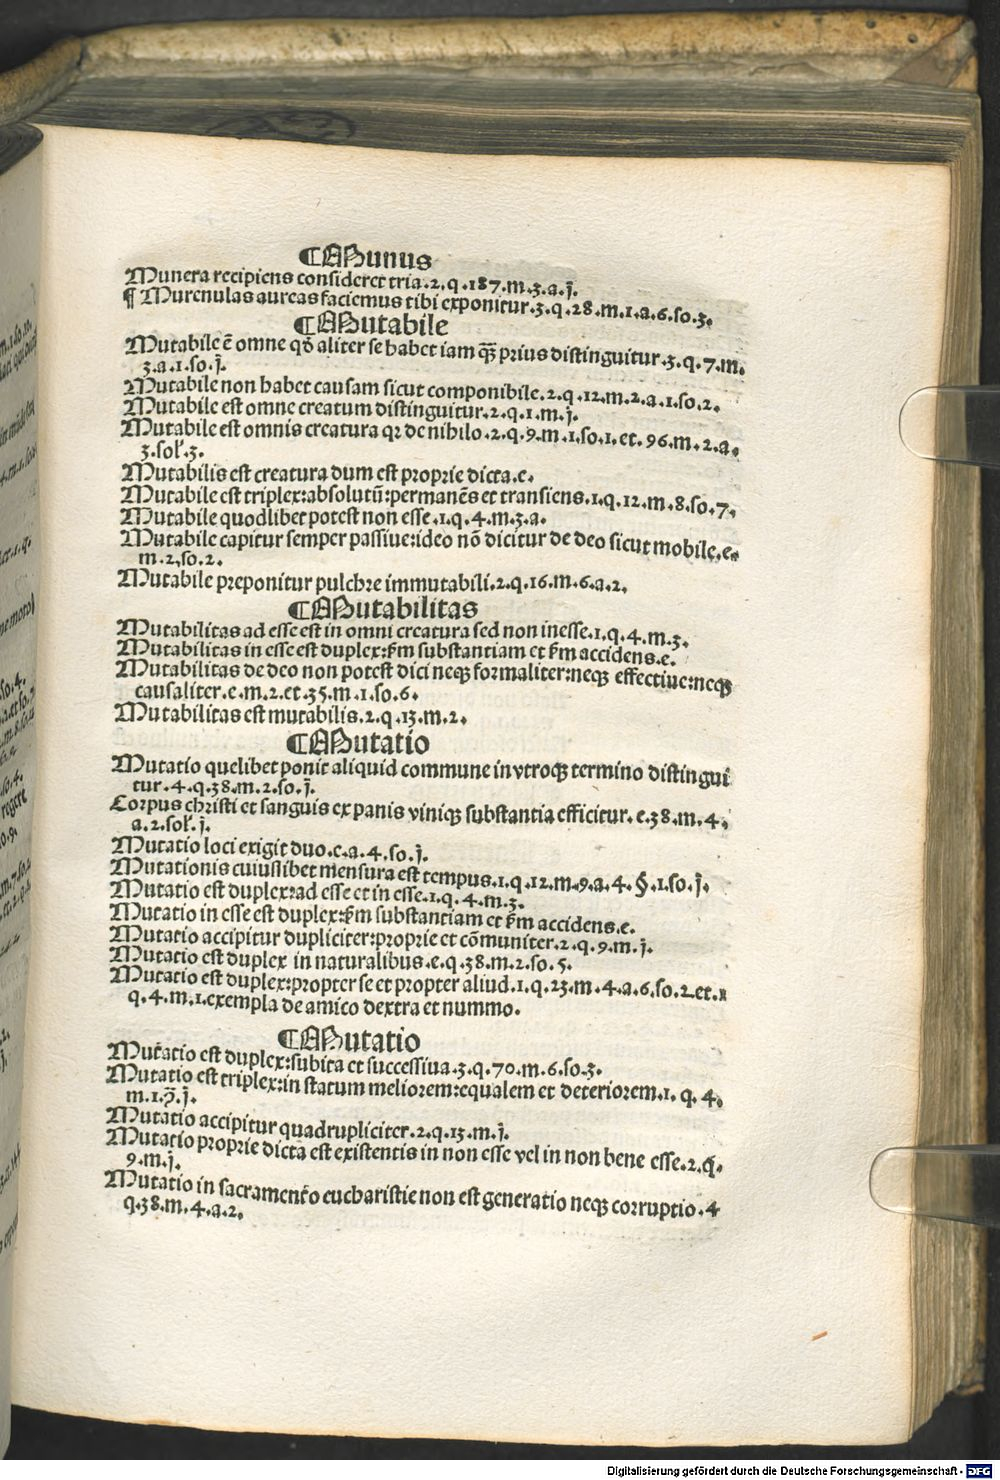 ¶Munus
Munera recipiens consideret tria.2.q.187.m.3.a.j̄.
¶ Murenulas aureas faciemus tibi exponitur.3.q.28.m.1.a.6.so.3.
¶Mutabile
Mutabile ē omne qď aliter se habet iam qȝ̄ prius distinguitur.3.q.7.m.
3.a.1.so.j̄.
Mutabile non habet causam sicut componibile.2.q.12.m.2.a.1.so.2.
Mutabile est omne creatum distinguitur.2.q.1.m.j̄.
Mutabile est omnis creatura qꝛ de nihilo.2.q.9.m.1.so.1.et.96.m.2.a.
3.soł.3.
Mutabilis est creatura dum est proprie dicta.e.
Mutabile est triplex:absolutū:permanēs et transiens.1.q.12.m.8.so.7.
Mutabile quodlibet potest non esse.1.q.4.m.3.a.
Mutabile capitur semper passiue:ideo nō dicitur de deo sicut mobile.e.
m.2.so.2.
Mutabile preponitur pulchre immutabili.2.q.16.m.6.a.2.
¶Mutabilitas
Mutabilitas ad esse est in omni creatura sed non inesse.1.q.4.m.3.
Mutabilitas in esse est duplex:ẜm substantiam et ẜm accidens.e.
Mutabilitas de deo non potest dici neqȝ formaliter:neqȝ effectiue:neqȝ
causaliter.e.m.2.et.35.m.1.so.6.
Mutabilitas est mutabilis.2.q.13.m.2.
¶Mutatio
Mutatio quelibet ponit aliquid commune in vtroqȝ termino distingui
tur.4.q.38.m.2.so.j̄.
Corpus christi et sanguis ex panis viniqȝ substantia efficitur.e.38.m.4.
a.2.soł.j̄.
Mutatio loci exigit duo.e.a.4.so.j̄.
Mutationis cuiuslibet mensura est tempus.1.q.12.m.9.a.4.§.1.so.j̄.
Mutatio est duplex:ad esse et in esse.1.q.4.m.3.
Mutatio in esse est duplex:ẜm substantiam et ẜm accidens.e.
Mutatio accipitur dupliciter:proprie et cōmuniter.2.q.9.m.j̄.
Mutatio est duplex in naturalibus.e.q.38.m.2.so.5.
Mutatio est duplex:propter se et propter aliud.1.q.23.m.4.a.6.so.2.et.1
q.4.m.1.exempla de amico dextra et nummo.
¶Mutatio
Mutatio est duplex:subita et successiua.3.q.70.m.6.so.3.
Mutatio est triplex:in statum meliorem:equalem et deteriorem.1.q.4.
m.1.ꝓ̄.j̄.
Mutatio accipitur quadrupliciter.2.q.13.m.j̄.
Mutatio proprie dicta est existentis in non esse vel in non bene esse.2.q.
9.m.j̄.
Mutatio in sacramento eucharistie non est generatio neqȝ corruptio.4
q.38.m.4.a.2.
Digitalisierung gefördert durch die Deutsche Forschungsgemeinschaft - DFG